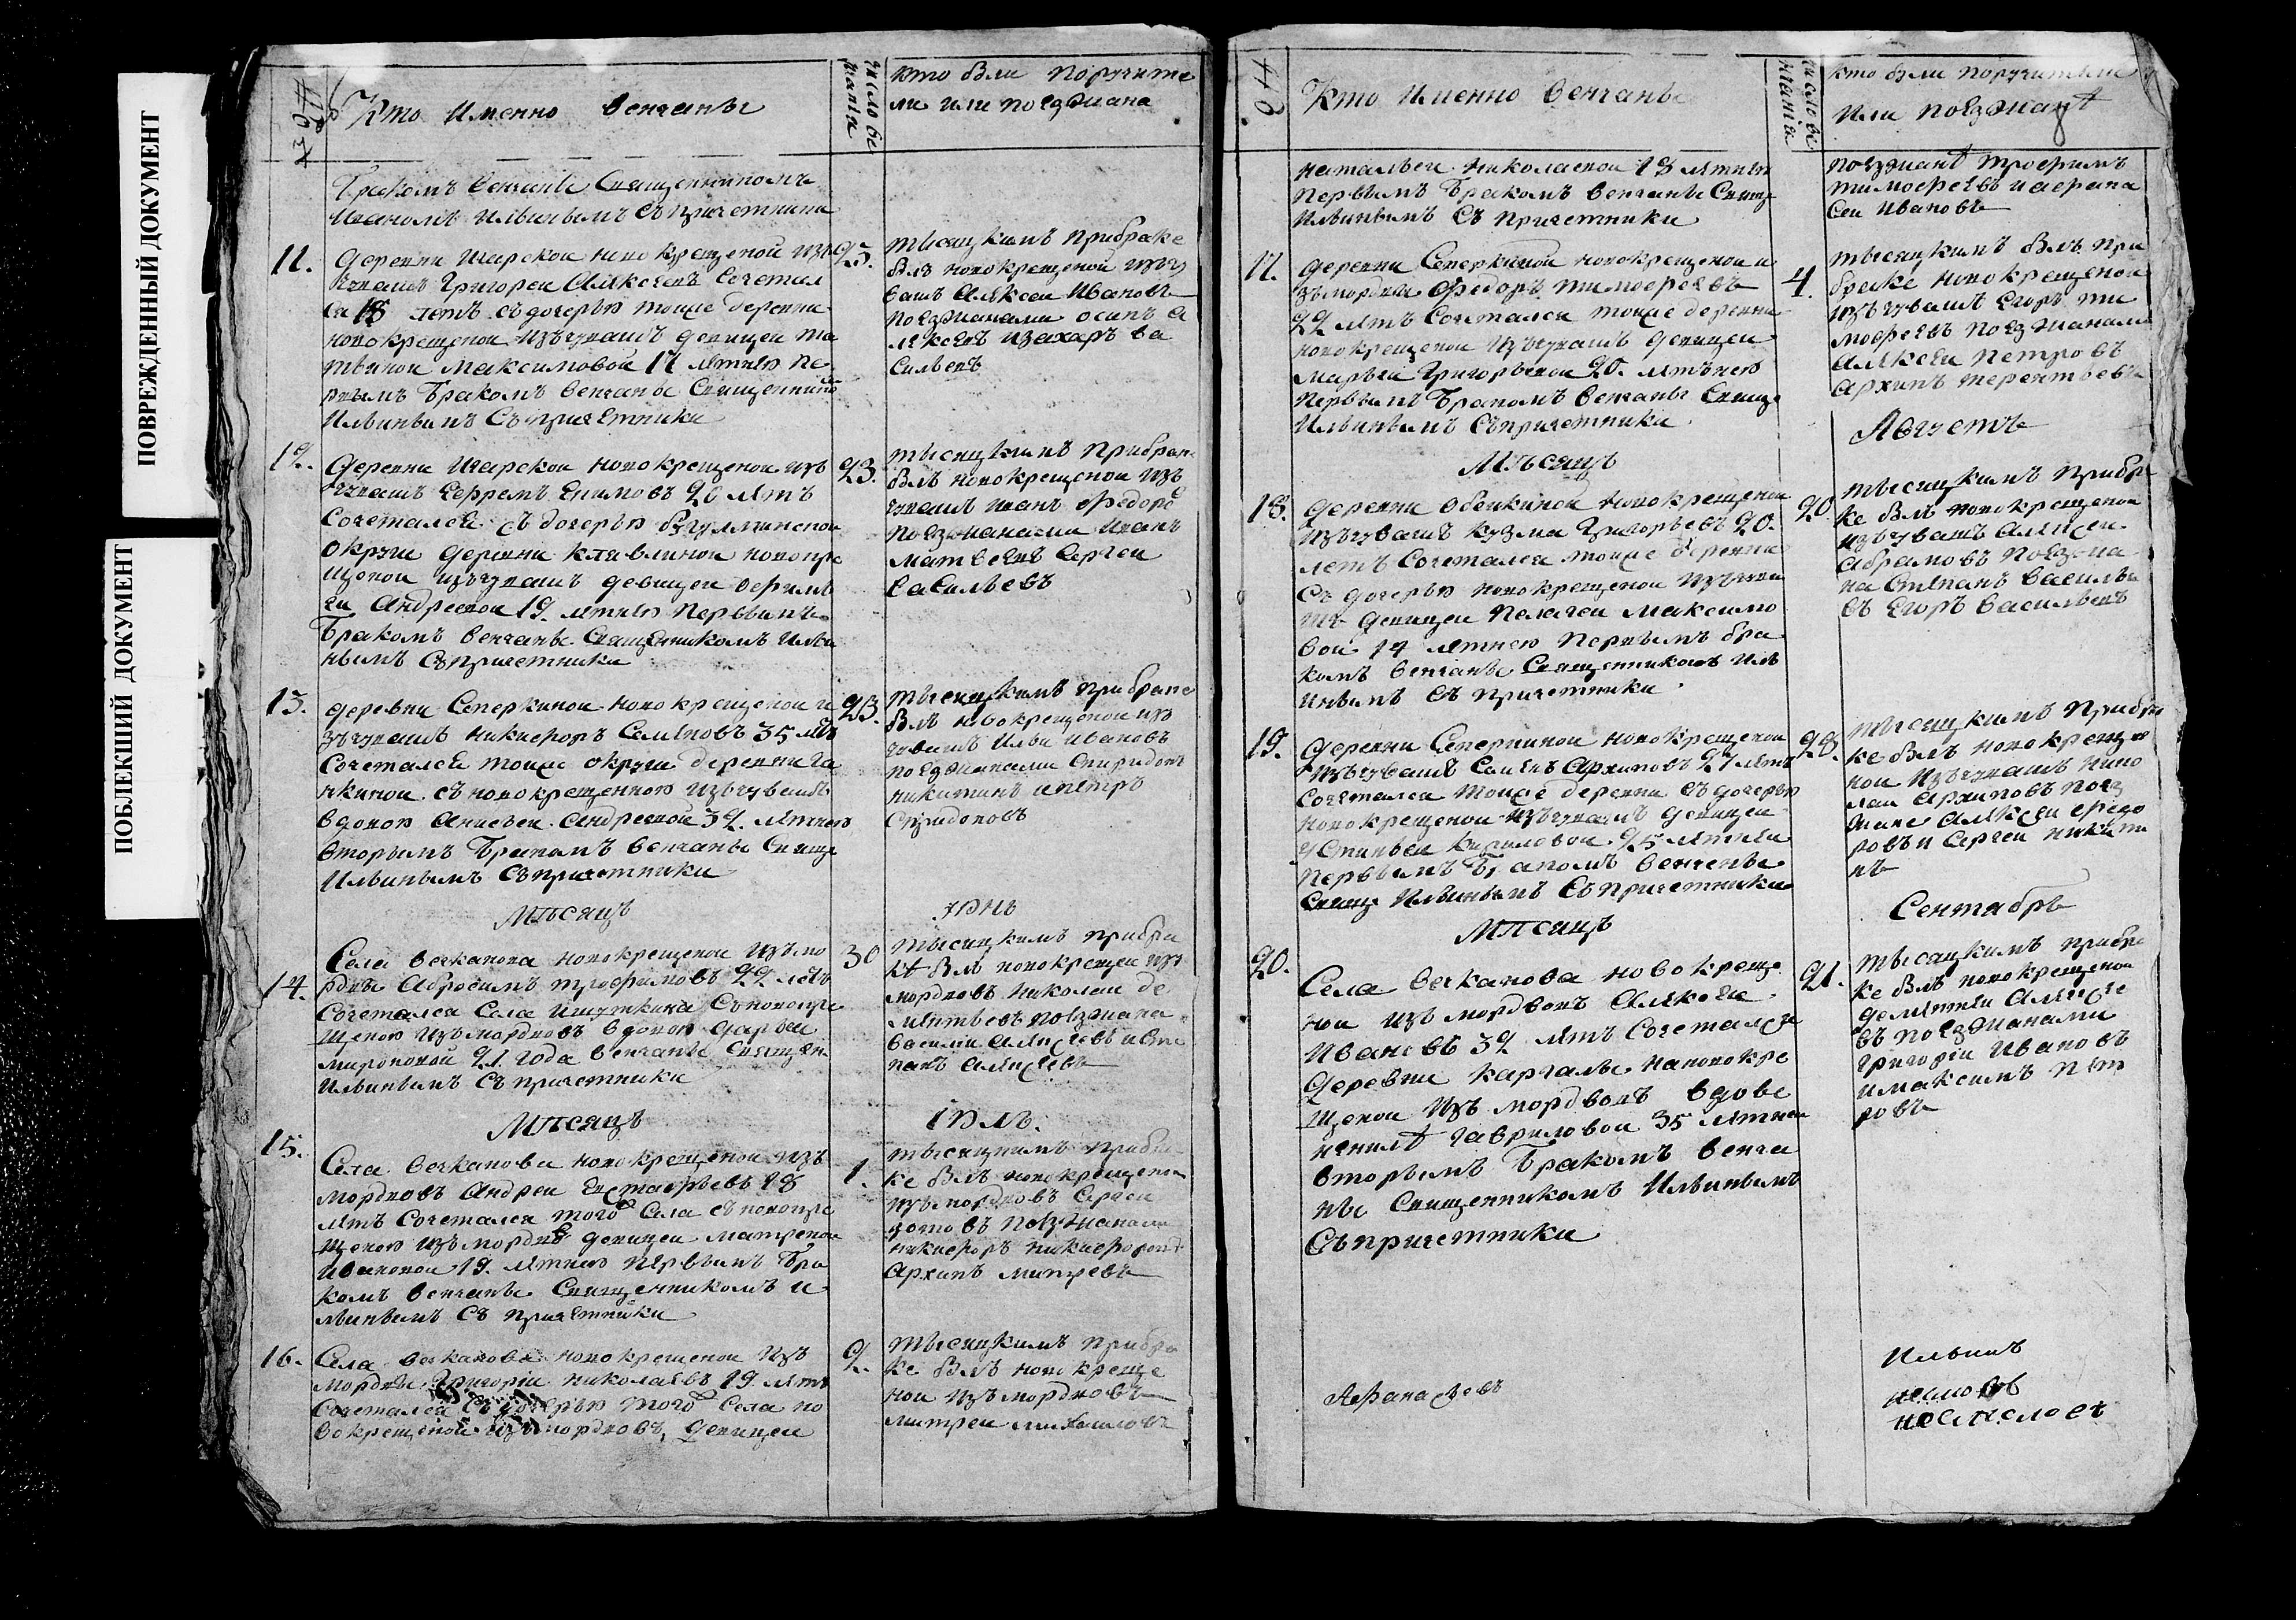 ПОВРЕЖДЕННЫЙ ДОКУМЕНТ
ПОБЛЕКШИЙ ДОКУМЕНТ
Кто именно венчаны
число ве
нчанiя
кто были поручите
ли или поезжана
бракомъ венчаны Священникомъ
Иваномъ Ильинымъ съ причетники
11.
деревни Шарской новокрещеной изъ
чувашъ Григореи Алексеевъ Сочетал
ся 18 летъ съ дочерью тоиже деревни
новокрещеной изъ чувашъ девицеи та
тьяной Максимовой 17 летнею пе
рвымъ бракомъ венчаны Священникомъ
Ильинымъ Съ причетники
25.
тысяцкимъ прибраке
былъ новокрещеной изъ чу
вашъ Алексеи Ивановъ
поезжанами осипъ а
лексеевъ изахаръ ва
сильевъ
12.
деревни Шарской новокрещеной изъ
чувашъ Ефремъ Екимовъ 20 летъ
Сочетался съ дочерью бугулминской
округи деревни клявлиной новокре
щеной изъ чувашъ девицеи
Андреевой 19 летнею первымъ
бракомъ венчаны Священникомъ Ильи
нымъ Съ причетники
23.
тысяцкимъ прибраке
былъ новокрещеной изъ
чувашъ иванъ федоровъ
поезжанами иванъ
матвеевъ Сергеи
васильевъ
13.
деревни Сеперкиной новокрещеной и
зъ чувашъ никифоръ Семеновъ 35 летъ
Сочетался тоиже округи деревни га
нкиной съ новокрещенною изъ чувашъ
вдовою Анисьеи Андреевой 32 летнею
вторымъ бракомъ венчаны Свяще
Ильинымъ Съ причетники
23.
тысяцкимъ прибраке
былъ новокрещеной изъ
чувашъ Илья Ивановъ
поезжанами Спиридонъ
никитинъ ипетръ
Спиридоновъ
Месяцъ
Июнь
14.
Села вечканова новокрещеной изъ мо
рдвы Абросимъ трофимовъ 22 летъ
Сочетался Села Ишуткина Съ новокре
щеною изъ мордвовъ вдовою дарьеи
мироновой 21 года венчаны Священ
Ильинымъ Съ причетники
30
тысяцкимъ прибра
ке былъ новокрещен изъ
мордвовъ николаи де
ментьевъ поезжана
васили алексеевъ исте
панъ алексеевъ
Месяцъ
Июль.
15.
Села вечканова новокрещеной изъ
мордвовъ Андреи Евстафьевъ 18
летъ Сочетался того Села съ новокре
щеною изъ мордвы девицеи матреной
Ивановой 19 летнею первымъ бра
комъ венчаны Священникомъ и
льинымъ Съ причетники
1.
тысяцкимъ прибра
ке былъ новокрещеной
изъ мордвовъ Сергеи
поезжанами
никифоръ никифоровъ
Архипъ митревъ
16.
Села вечканова новокрещеной изъ
мордвы Григорiи николаевъ 19 летъ
Сочетался Съ дочерью того Села но
вокрещеной изъ мордвовъ девицеи
2.
тысяцкимъ прибра
ке былъ новокреще
ной изъ мордвовъ
митреи михаиловъ
Кто именно венчаны
число ве
нчанiя
кто были поручители
или поезжанѣ
натальеи николаевой 18 летнею
первымъ бракомъ венчаны Свяще
Ильинымъ Съ причетники
поезжанѣ трофимъ
тимофеевъ иафана
сеи ивановъ
17.
деревни Сеперкиной новокрещеной и
зъ мордвы федоръ тимофеевъ
22 летъ Сочетался тоиже деревни
новокрещеной изъ чувашъ девицеи
марьеи Григорьевой 20. летнею
первымъ бракомъ венчаны Свяще
Ильинымъ Съ причетники.
4.
тысяцкимъ былъ при
браке новокрещеной
изъ чувашъ Егоръ ти
мофеевъ поезжанами
Алексеи петровъ
архипъ терентьевъ
Месяцъ
Августъ
18.
деревни новокрещеной
изъ чувашъ кузма Григорьевъ 20.
летъ Сочетался тоиже деревни
Съ дочерью новокрещеной изъ чува
шъ девицеи Пелагеи Максимо
вой 14 летнею первымъ бра
комъ венчаны Священникомъ Иль
инымъ Съ причетники.
20
тысяцкимъ прибра
ке былъ новокрещеной
изъ чувашъ алексеи
абрамовъ поезжа
на Степанъ василье
въ Егоръ васильевъ
19.
деревни Сеперкиной новокрещеной
изъ чувашъ Семенъ Архиповъ 27 летъ
Сочетался тоиже деревни съ дочерью
новокрещеной изъ чувашъ девицеи
устиньеи кириловой 25 летнеи
первымъ бракомъ венчены
Свяще Ильинымъ Съ причетники
28.
тысяцкимъ прибра
ке былъ новокреще
ной изъ чувашъ нико
лаи архиповъ поез
жане алексеи федо
ровъ и Сергеи никити
нъ
Месяцъ
Сентябрь
20.
Села вечканова новокреще
ной изъ мордвовъ Алексеи
Ивановъ 32 летъ Сочетался
деревни каргалы нановокре
щеной изъ мордвовъ вдове
ненилѣ гавриловой 35 летнеи
вторымъ бракомъ венча
ны Священникомъ Ильинымъ
Съ причетники
21.
тысяцкимъ прибра
ке былъ новокрещеной
деметеи алексее
въ поезжанами
григорiи ивановъ
имаксимъ пет
ровъ
Афанасевъ
Ильинъ